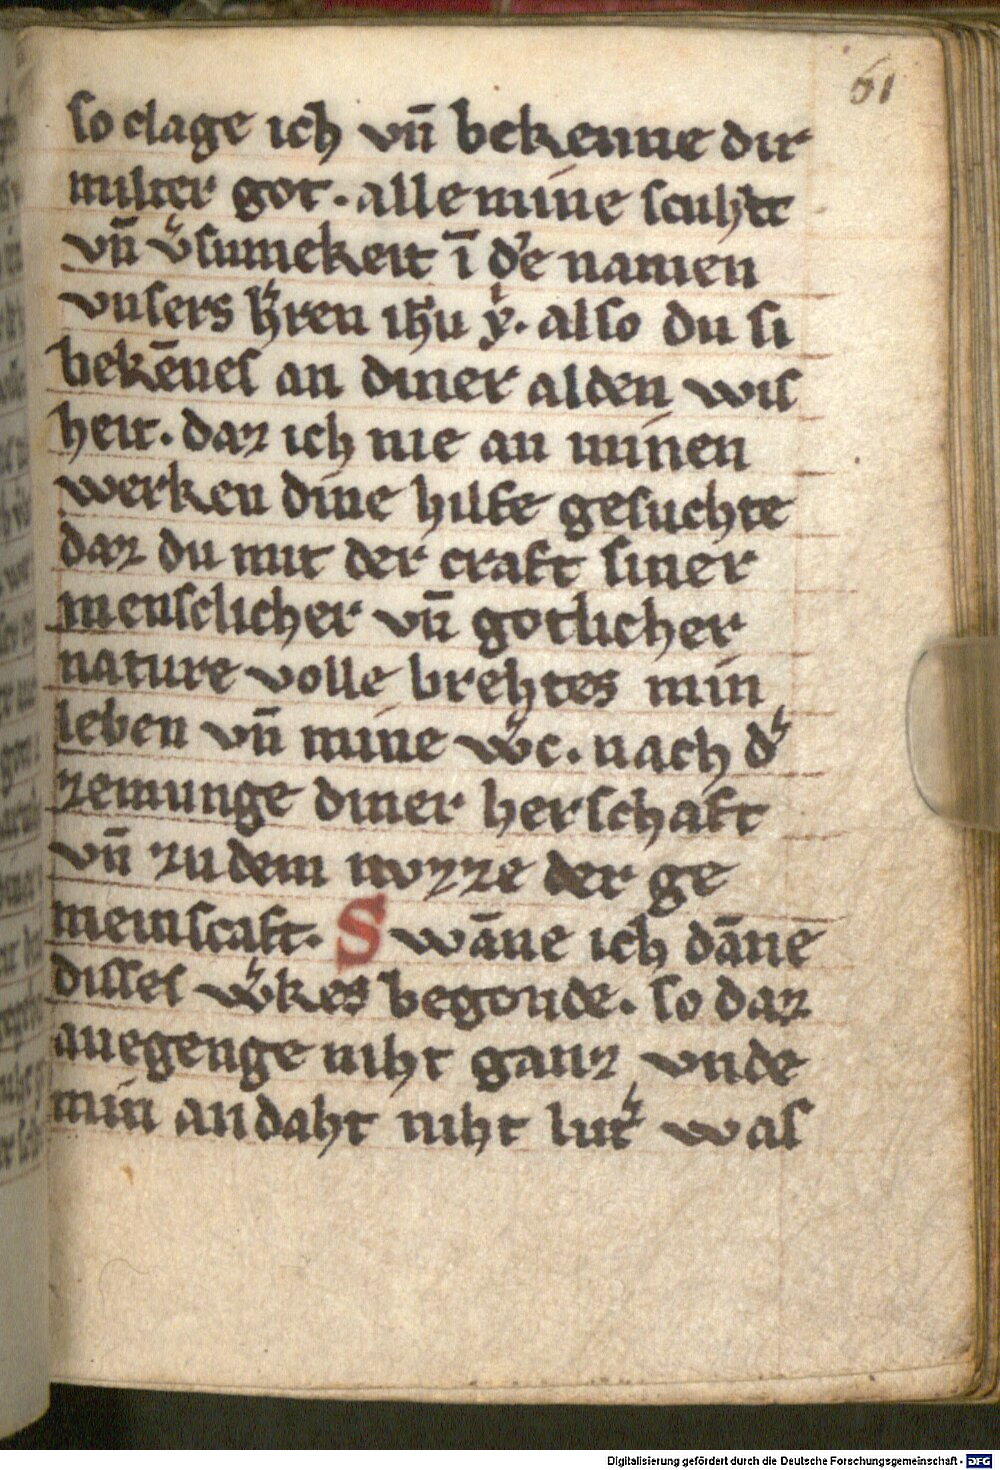 61
so clage ich vn̄ bekenne dir
milter got. alle mine scuhlt
vn̄ v͛sumekeit ī d͛e namen
vnsers h͛ren ih̄u x͛. also du si
bekēnes an diner alden wis
heit. daz ich nie an minen
werken dine hilfe gesuchte
daz du mit der craft siner
mensclicher vn̄ gotlicher
nature volle brehtes min
leben vn̄ mine w͛c. nach d͛
zemunge diner herschaft
vn̄ zu dem nvzze der ge
meinscaft. S wāne ich dāne
disses w͛kes begonde. so daz
anegenge niht ganz vnde
min andaht niht lut͛ was
Digitalisierung gefördert durch die Deutsche Forschungsgemeinschaft - DFG